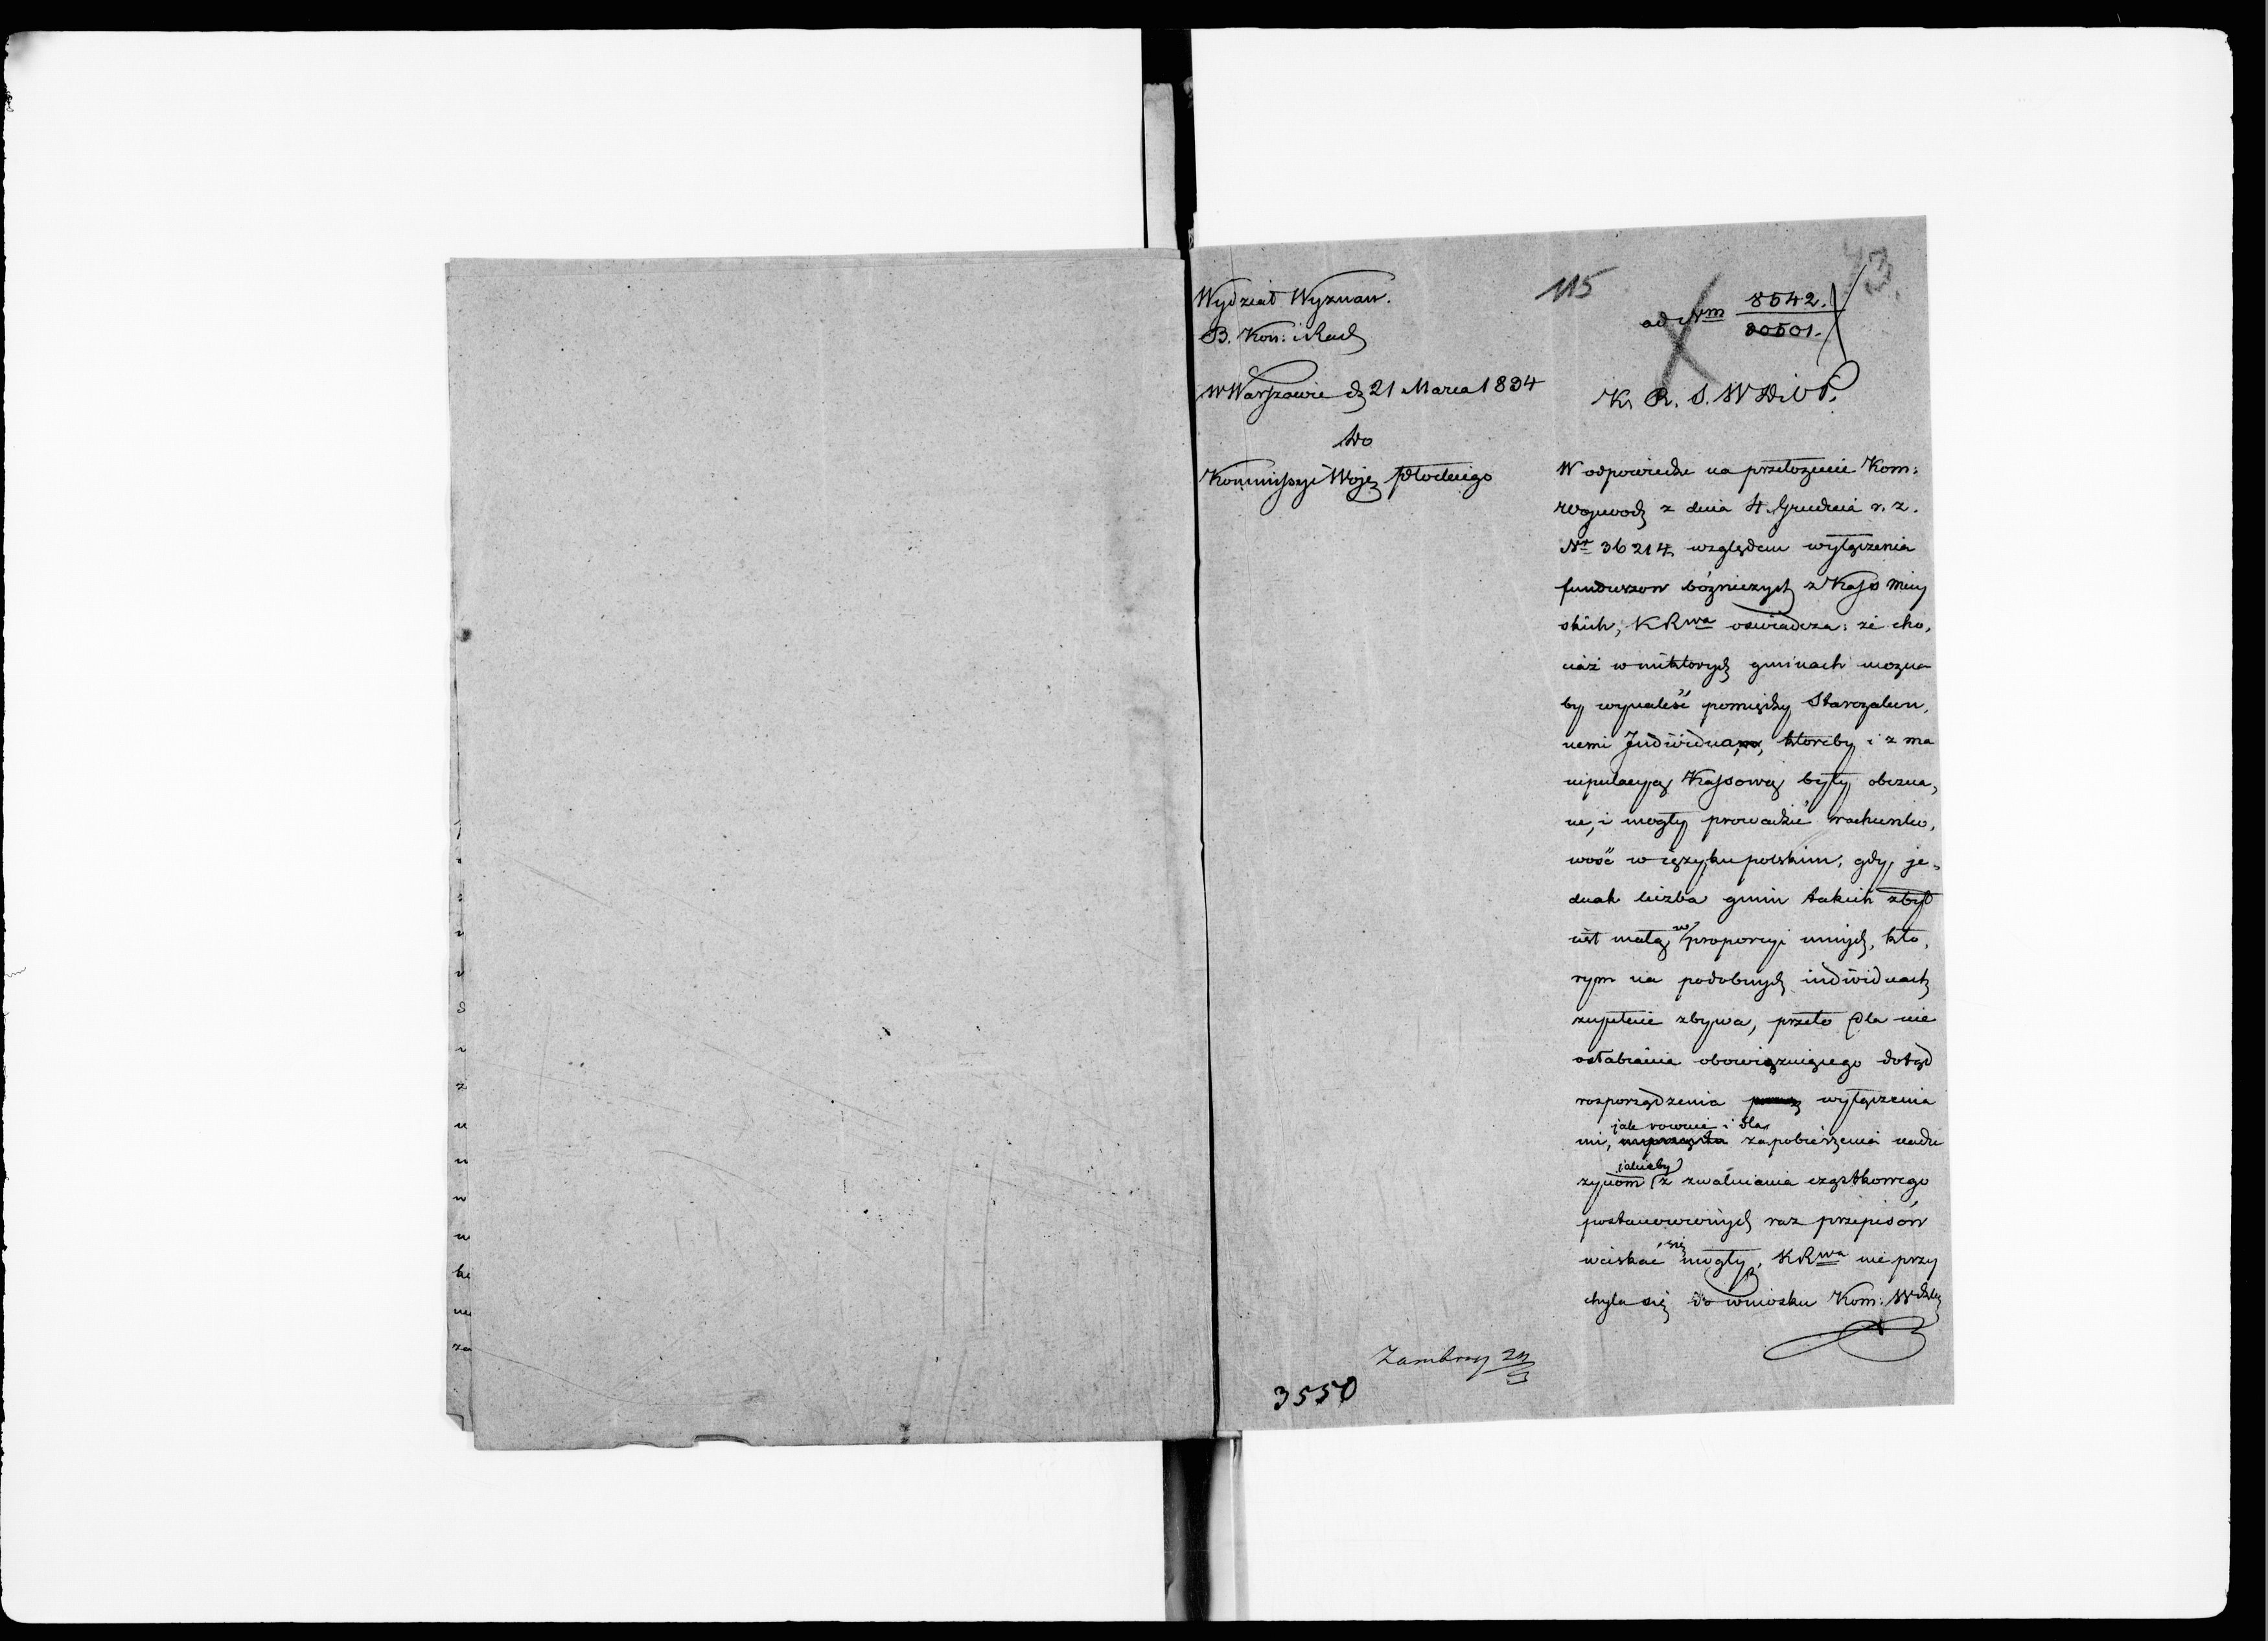 115
73.
Wydział Wyznan.
B. Kon: i Rach
w Warszawie dz 21 Marca 1834
Do
Kommissyi Wojew Płockiego
ad Nrm 8542. / 20501.
K. R. S. W. D. i O. P.
W odpowiedzi na przełożenie Kom:
Wojewodz z dnia 4. Grudnia r. z.
Nr 36214 względem wyłączenia
funduszow bóżniczych z Kass Miey
skich, KRwa oswiadcza: że cho,
ciaż w niktorych gminach można
by wynaleść pomiędzy Starozakon,
nemi Indiwidua, ktoreby i z ma
nipulacyą Kassową były obezna,
ne, i mogły prowadzić rachunko,
wość w ięzyku polskim, gdy je,
dnak liczba gmin takich zbyt
iest małą w proporcyi innych, kto,
rym na podobnych indiwiduach
zupełnie zbywa, przeto dla nie
osłabienia obowięzuiącego dotąd
rosporządzenia wyłączenia
jak rownie i dla
mi, zapobieżenia nadu
jakieby
życiom z zwalniania cząstkowego
postanowionych raz przepisów
się
wciskać mogły, KRwa nie przy
chyla się do wniosku Kom: Wdzkiej
Zambrzy
3550